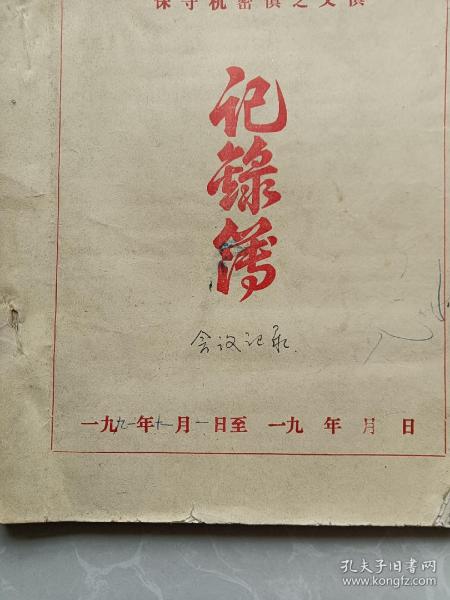 保守机密慎之又慎
记录簿
会议记录
一九九一年十一月一日至一九 年 月 日
孔夫子旧书网
www.kongfz.com